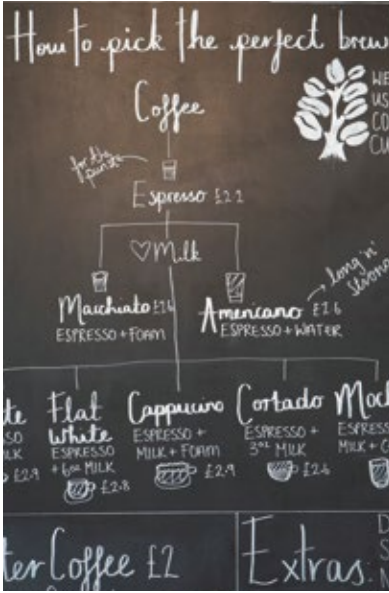 How to pick the perfect brew
Coffee
WE
US
CO
CU
for the purist
Espresso £2.2
♡ Milk
long 'n' strong
Macchiato £2.6
ESPRESSO + FOAM
Americano £2.6
ESPRESSO + WATER
te
SO
LK
£2.9
Flat White
ESPRESSO
+ 6oz MILK
£2.8
Cappucino
ESPRESSO +
MILK + FOAM
£2.9
Cortado
ESPRESSO +
3oz MILK
£2.6
Moch
ESPRESSO
MILK + C
ter Coffee £2
Extras: